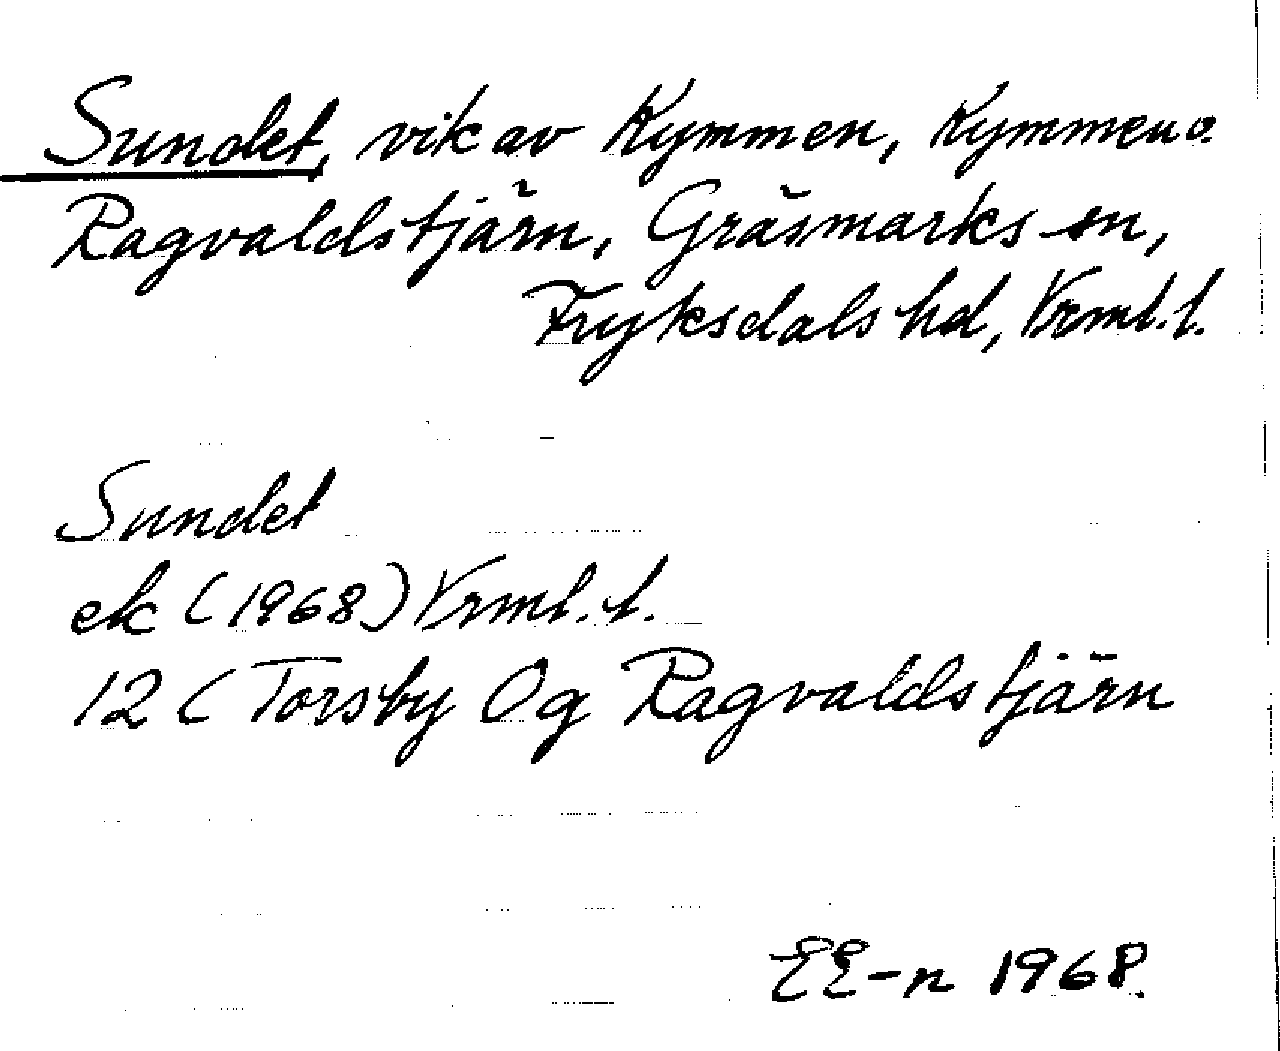 Sundet, vik av Kymmen, Kymmen o.
Ragvaldstjärn, Gräsmarks sn,
Fryksdals hd, Vrml. l.
Sundet
ek (1968) Vrml. l.
12 C Torsby Og Ragvaldstjärn
EE-n 1968.